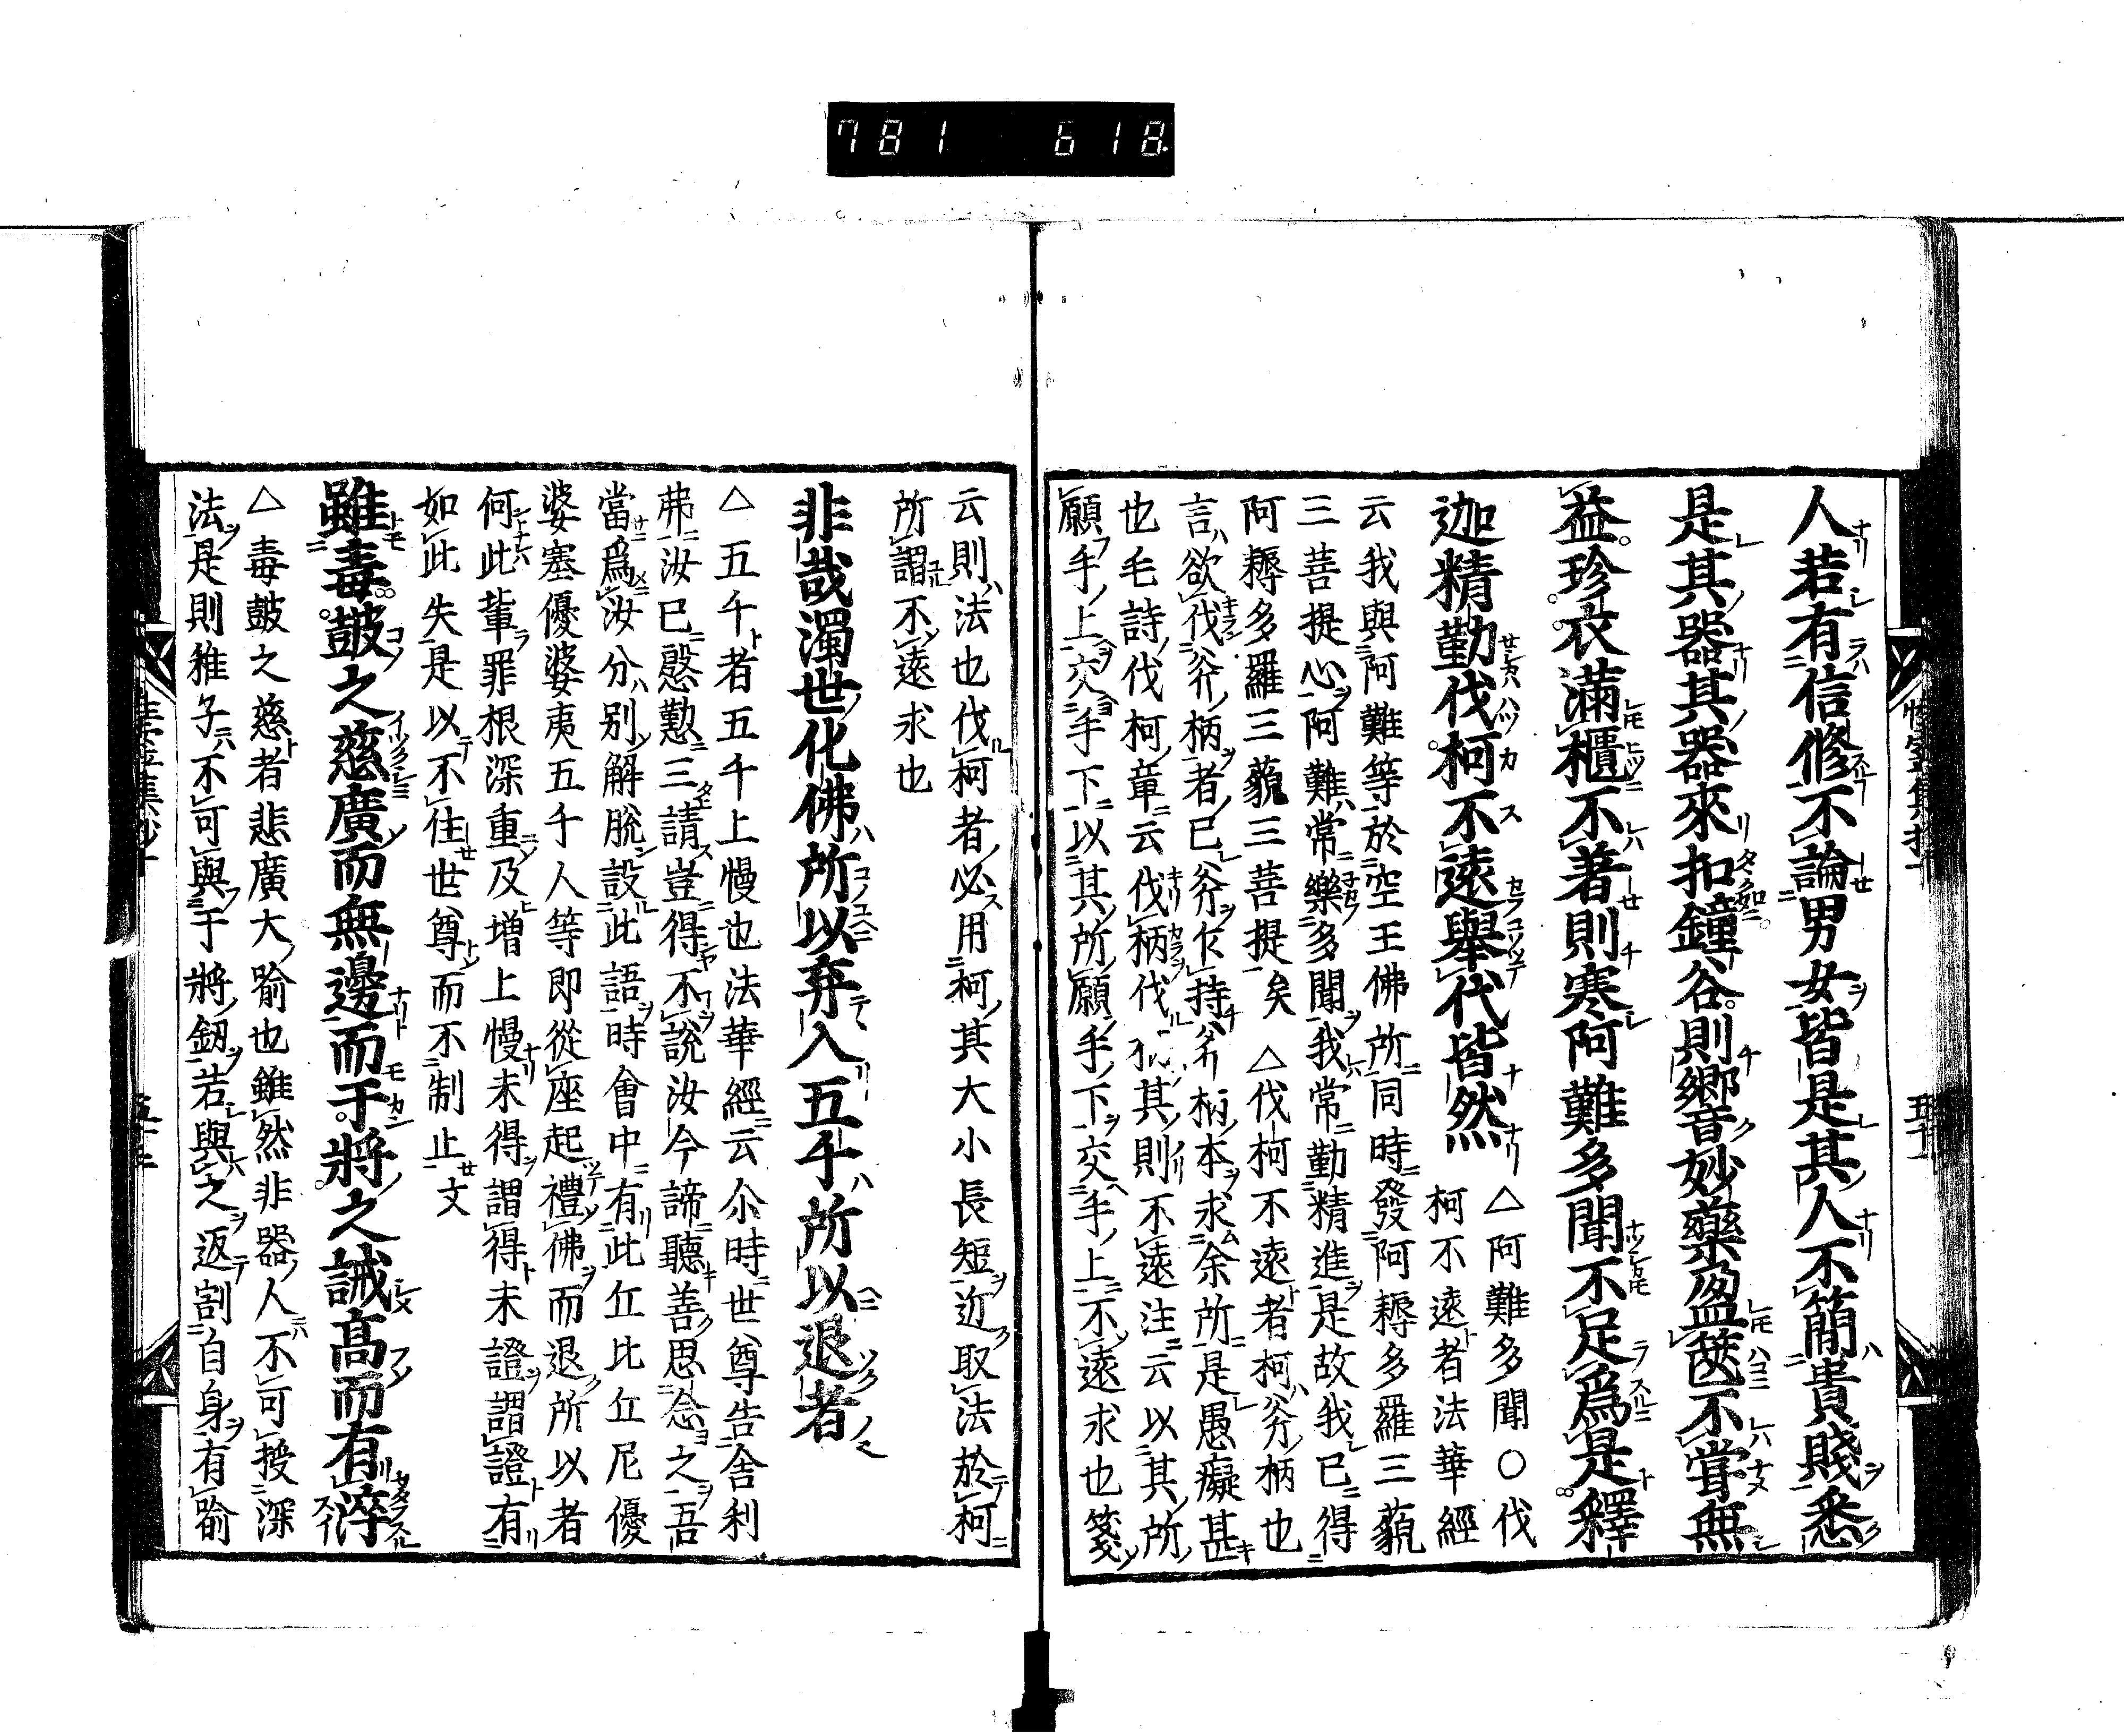 781 618
人若有信修不論男女皆是其人不簡貴賤悉
是其器其器來扣鐘谷則響妙藥盈篋不甞無
益珍衣滿櫃不著則寒阿難多聞不足爲是釋
迦精勤伐柯不遠舉代皆然
△阿難多聞○伐
柯不遠者法華經
云我與阿難等於空王佛所同時發阿耨多羅三藐
三菩提心阿難常樂多聞我常勤精進是故我已得
阿耨多羅三藐三菩提矣 △伐柯不遠者柯斧柄也
言欲伐斧柄者已斧乍持斧柄本求余所是愚癡甚
也毛詩伐柯章云伐柄伐其則不遠注云以其所
願手上交手下以其所願手下交手上不遠求也箋
云則法也伐柯者必用柯其大小長短近取法於柯
所謂不遠求也
非哉濁世化佛所以弃入五千所以退者
△五千者五千上慢也法華經云尒時世尊告舎利
弗汝已慇懃三請豈得不說汝今諦聽善思念之吾
當爲汝分别解脫設此語時會中有此丘比丘尼優
婆塞優婆夷五千人等即從座起禮佛而退所以者
何此輩罪根深重及增上慢未得謂得未證謂證有
如此失是以不住世尊而不制止文
雖毒皷之慈廣而無邊而于將之誡高而有淬
△毒皷之慈者悲廣大喻也雖然非器人不可授深
法是則稚子不可與于將釼若與之返割自身有喻